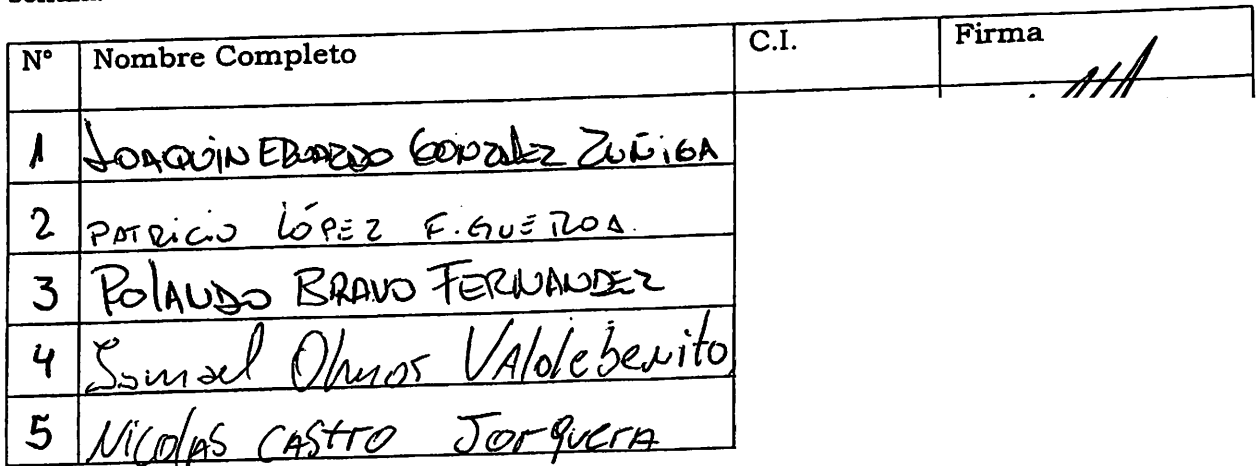 N° Nombre Completo C.I. Firma
1 JOAQUIN EDUARDO GONZALEZ ZUÑIGA
2 PATRICIO LÓPEZ FIGUEROA.
3 ROLANDO BRAVO FERNANDEZ
4 Ismael Olmos VAldebenito
5 NicolAS CASTRO JorquerA